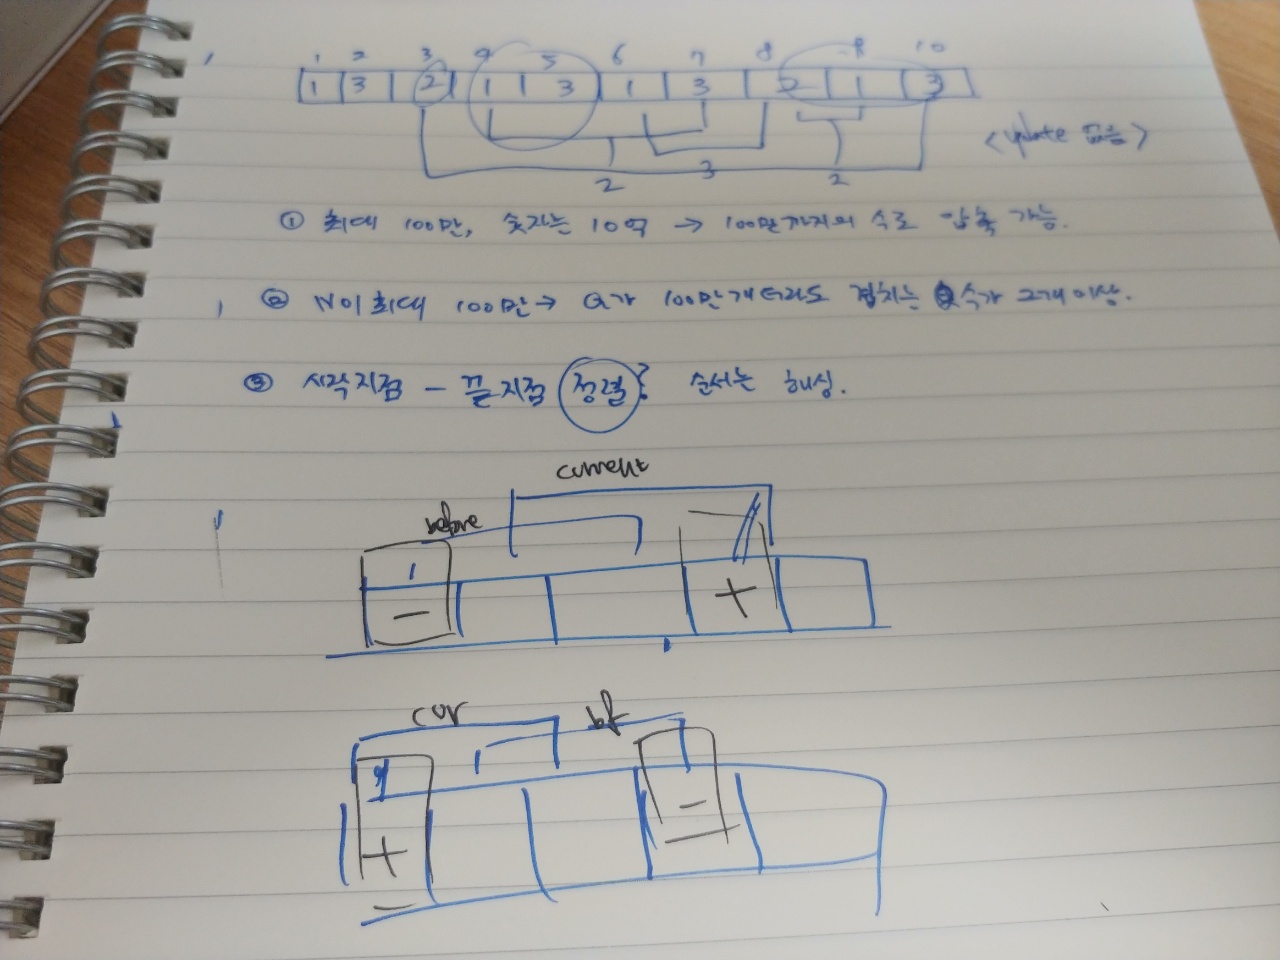 1 2 3 4 5 6 7 8 9 10
1 3 2 1 3 1 3 2 1 3
<update 없음>
2 3 2
① 최대 100만, 숫자는 10억 → 100만까지의 수로 압축 가능.
② N이 최대 100만 → Q가 100만개더라도 겹치는 수가 2개이상.
③ 시작지점 - 끝지점 정렬? 순서는 해싱.
current
before
- +
cur bf
+ -
-